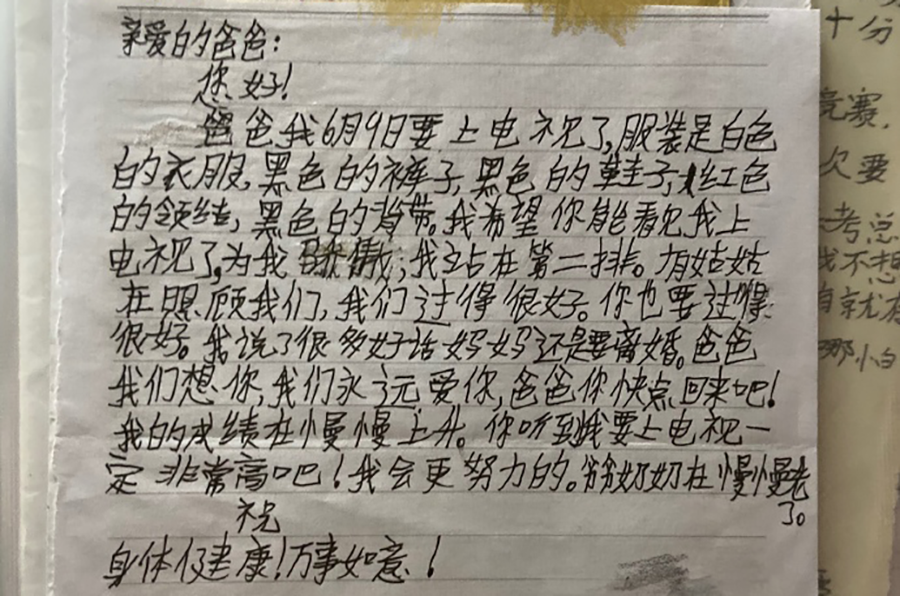 亲爱的爸爸:
您好!
爸爸,我6月9日要上电视了,服装是白色
的衣服,黑色的裤子,黑色的鞋子,红色
的领结,黑色的背带。我希望你能看见我上
电视了,为我骄傲;我站在第二排。有姑姑
在照顾我们,我们过得很好。你也要过得
很好。我说了很多好话妈妈还是要离婚。爸爸
我们想你,我们永远爱你,爸爸你快点回来吧!
我的成绩在慢慢上升。你听到我要上电视一
定非常高吧!我会更努力的。爷爷奶奶在慢慢老
了。
祝
身体健康!万事如意!
十分
竞赛,
欠要
考总
我不想
自就有
那小白